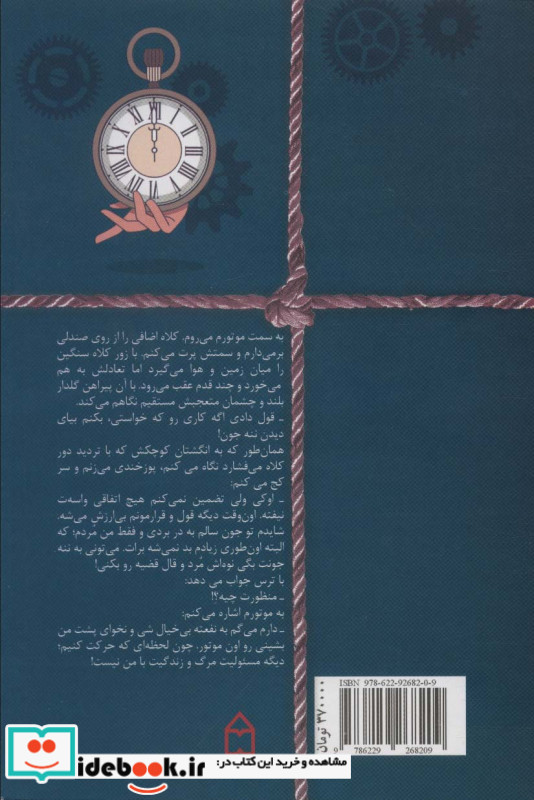 به سمت موتورم می‌روم. کلاه اضافی را از روی صندلی
برمی‌دارم و سمتش پرت می‌کنم. با زور کلاه سنگین
را میان زمین و هوا می‌گیرد اما تعادلش به هم
می‌خورد و چند قدم عقب می‌رود. با آن پیراهن گلدار
بلند و چشمان متعجبش مستقیم نگاهم می‌کند.
ـ قول دادی اگه کاری رو که خواستی، بکنم بیای
دیدن ننه جون!
همان‌طور که به انگشتان کوچکش که با تردید دور
کلاه می‌فشارد نگاه می کنم، پوزخندی می‌زنم و سر
کج می کنم:
ـ اوکی ولی تضمین نمی‌کنم هیچ اتفاقی واسه‌ت
نیفته. اون‌وقت دیگه قول و قرارمونم بی‌ارزش می‌شه.
شایدم تو جون سالم به در بردی و فقط من مُردم؛ که
البته اون‌طوری زیادم بد نمی‌شه برات. می‌تونی به ننه
جونت بگی نوه‌اش مُرد و قال قضیه رو بکنی!
با ترس جواب می دهد:
ـ منظورت چیه؟!
به موتورم اشاره می‌کنم:
ـ دارم می‌گم به نفعته بی‌خیال شی و نخوای پشت من
بشینی رو اون موتور، چون لحظه‌ای که حرکت کنیم؛
دیگه مسئولیت مرگ و زندگیت با من نیست!
ISBN 978-622-92682-0-9
9 786229 268209
۳۷۰۰۰۰ تومان
مشاهده و خرید این کتاب در:
idebook.ir